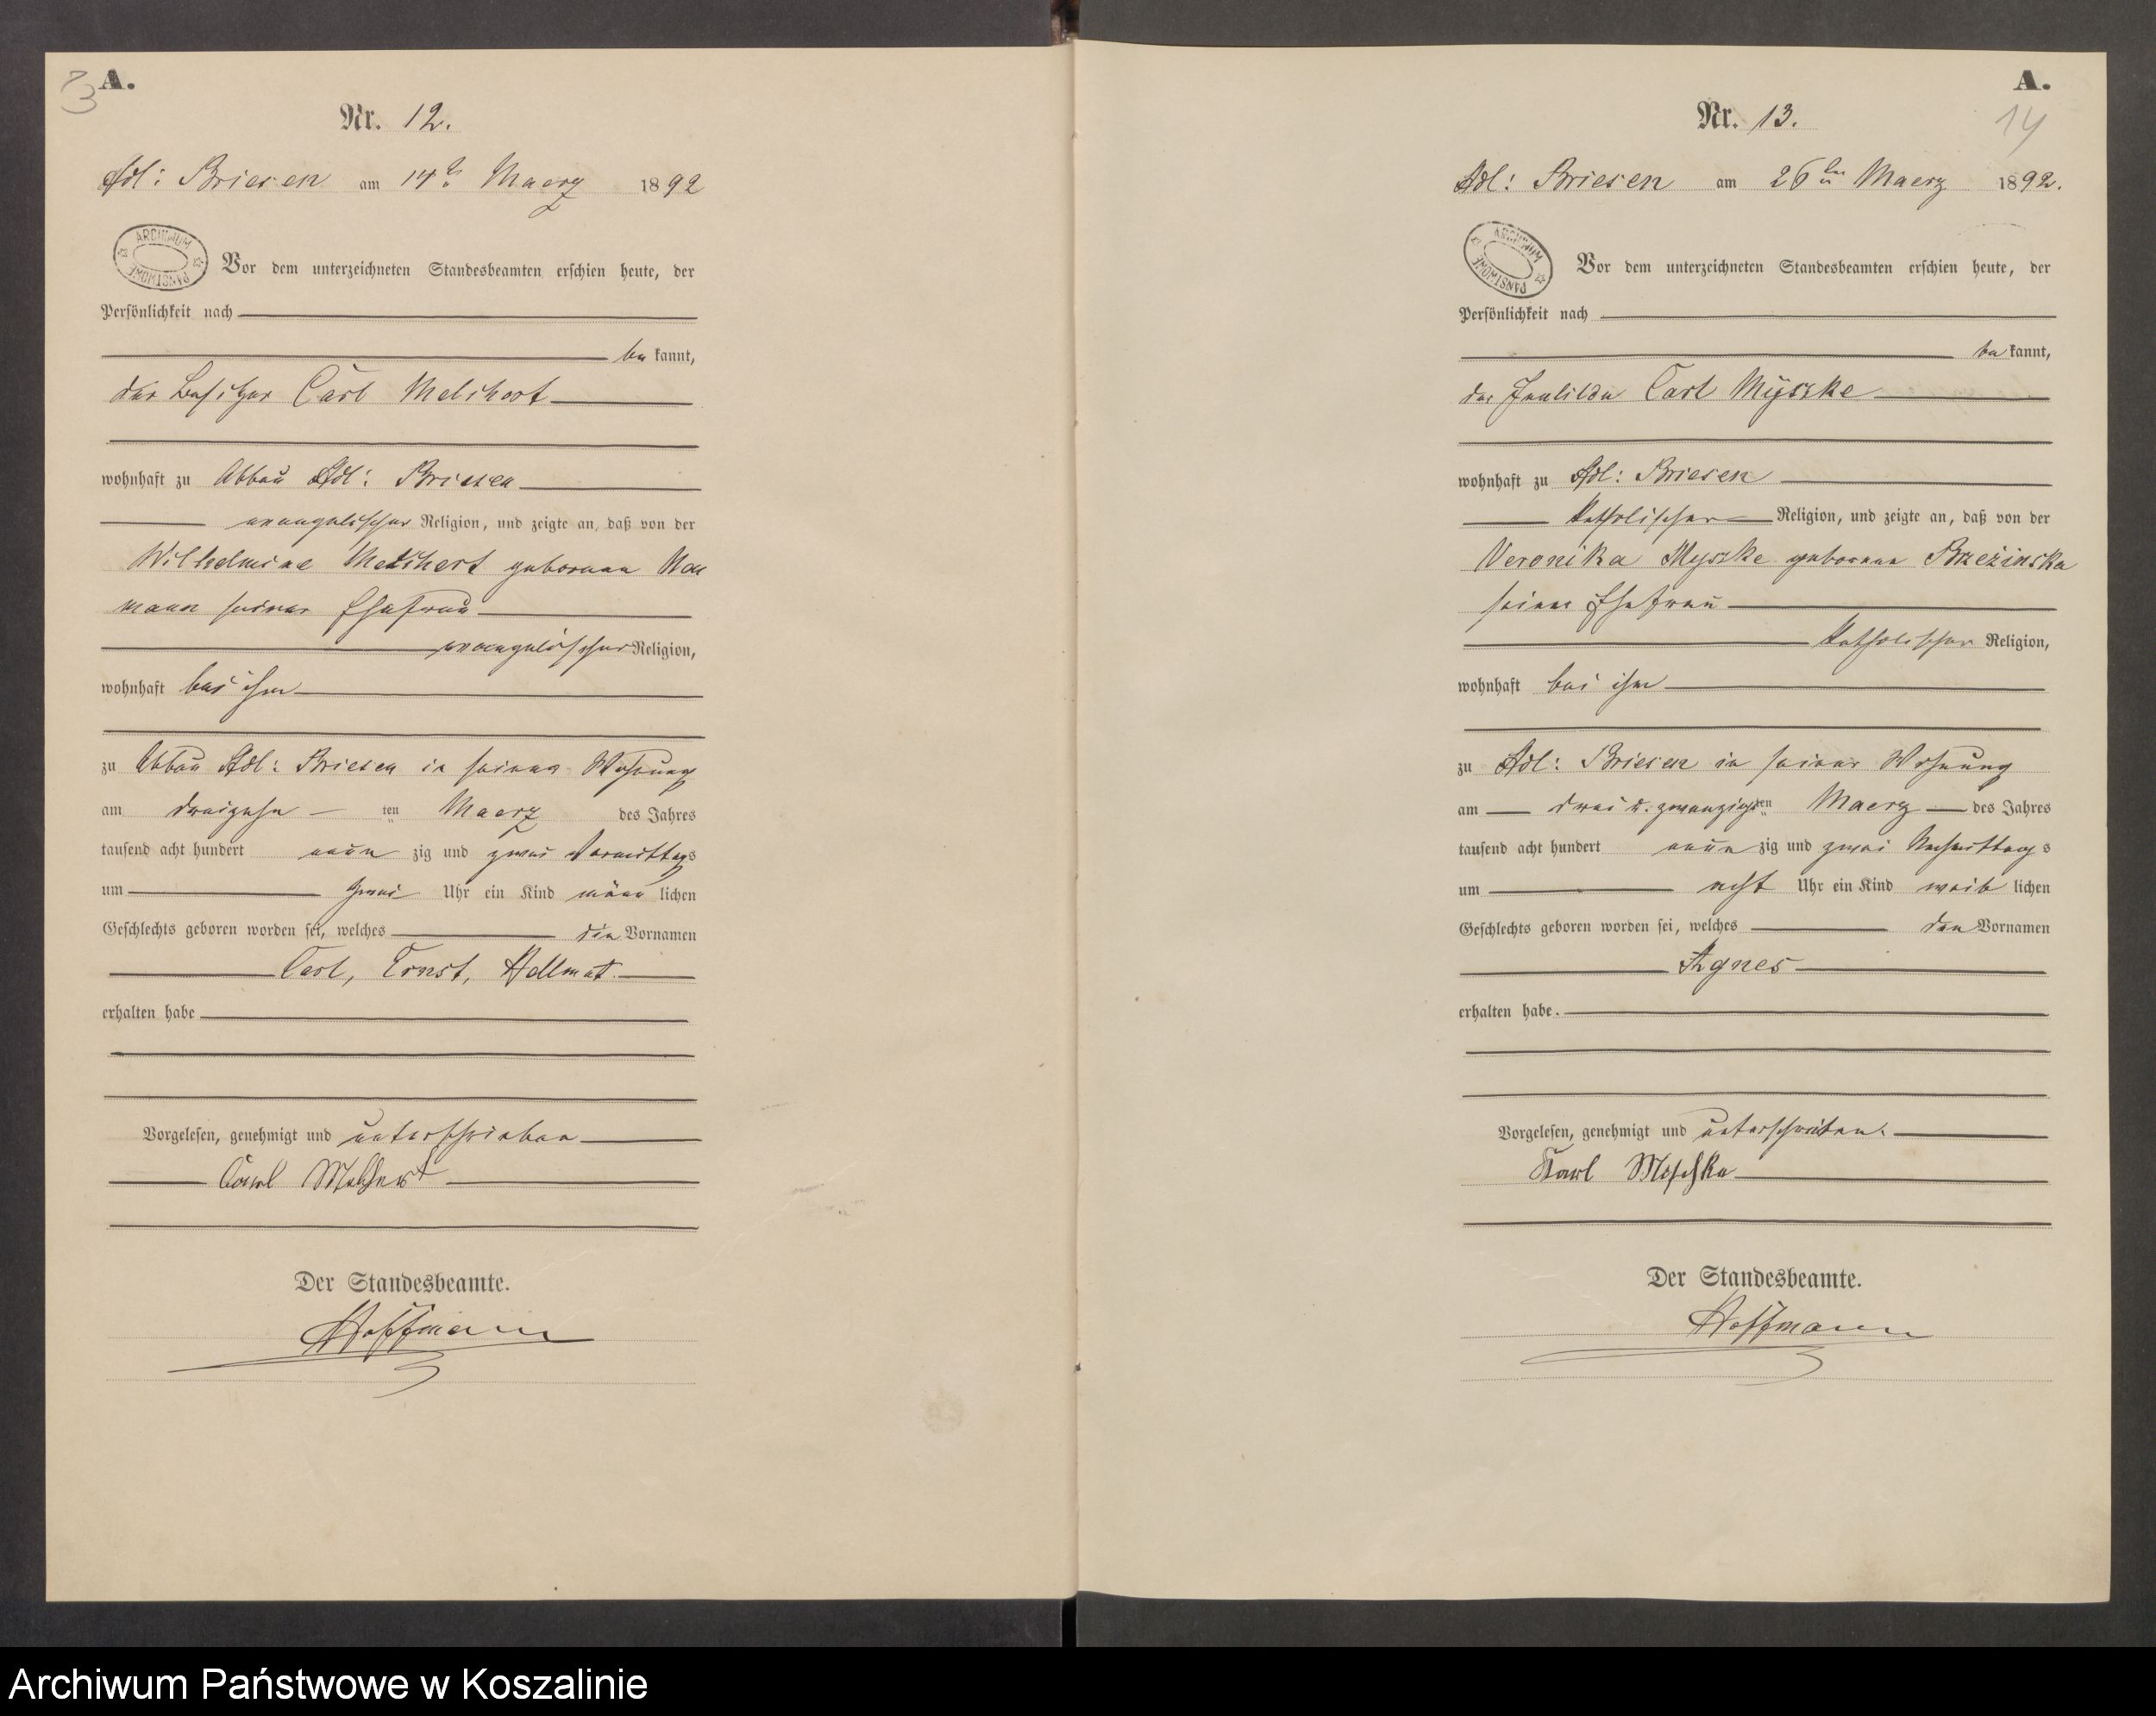 A.
Nr. 12.
Adl: Briesen am 14t Maerz 1892
ARCHIWUM PAŃSTWOWE
Vor dem unterzeichneten Standesbeamten erschien heute, der
Persönlichkeit nach
be kannt,
der Besitzer Carl Melchert
wohnhaft zu Abbau Adl: Briesen
evangelischer Religion, und zeigte an, daß von der
Wilhelmine Melchert geborenen
mann seiner Ehefrau
evangelischer Religion,
wohnhaft bei ihm
zu Abbau Adl: Briesen in seiner Wohnung
am dreizehn ten Maerz des Jahres
tausend acht hundert neun zig und zwei Vormittags
um zwei Uhr ein Kind männ lichen
Geschlechts geboren worden sei, welches die Vornamen
Carl, Ernst, Hellmut
erhalten habe
Vorgelesen, genehmigt und unterschrieben
Carl Melchert
Der Standesbeamte.
Hoffmann
A.
14
Nr. 13.
Adl: Briesen am 26ten Maerz 1892.
ARCHIWUM PAŃSTWOWE
Vor dem unterzeichneten Standesbeamten erschien heute, der
Persönlichkeit nach
be kannt,
der Carl Myszke
wohnhaft zu Adl: Briesen
katholischer Religion, und zeigte an, daß von der
Veronika Myszke geborenen Brzezinska
seiner Ehefrau
katholischer Religion,
wohnhaft bei ihm
zu Adl: Briesen in seiner Wohnung
am drei u. zwanzigsten Maerz des Jahres
tausend acht hundert neun zig und zwei Nachmittags
um acht Uhr ein Kind weib lichen
Geschlechts geboren worden sei, welches den Vornamen
Agnes
erhalten habe.
Vorgelesen, genehmigt und unterschrieben.
Karl
Der Standesbeamte.
Hoffmann
Archiwum Państwowe w Koszalinie